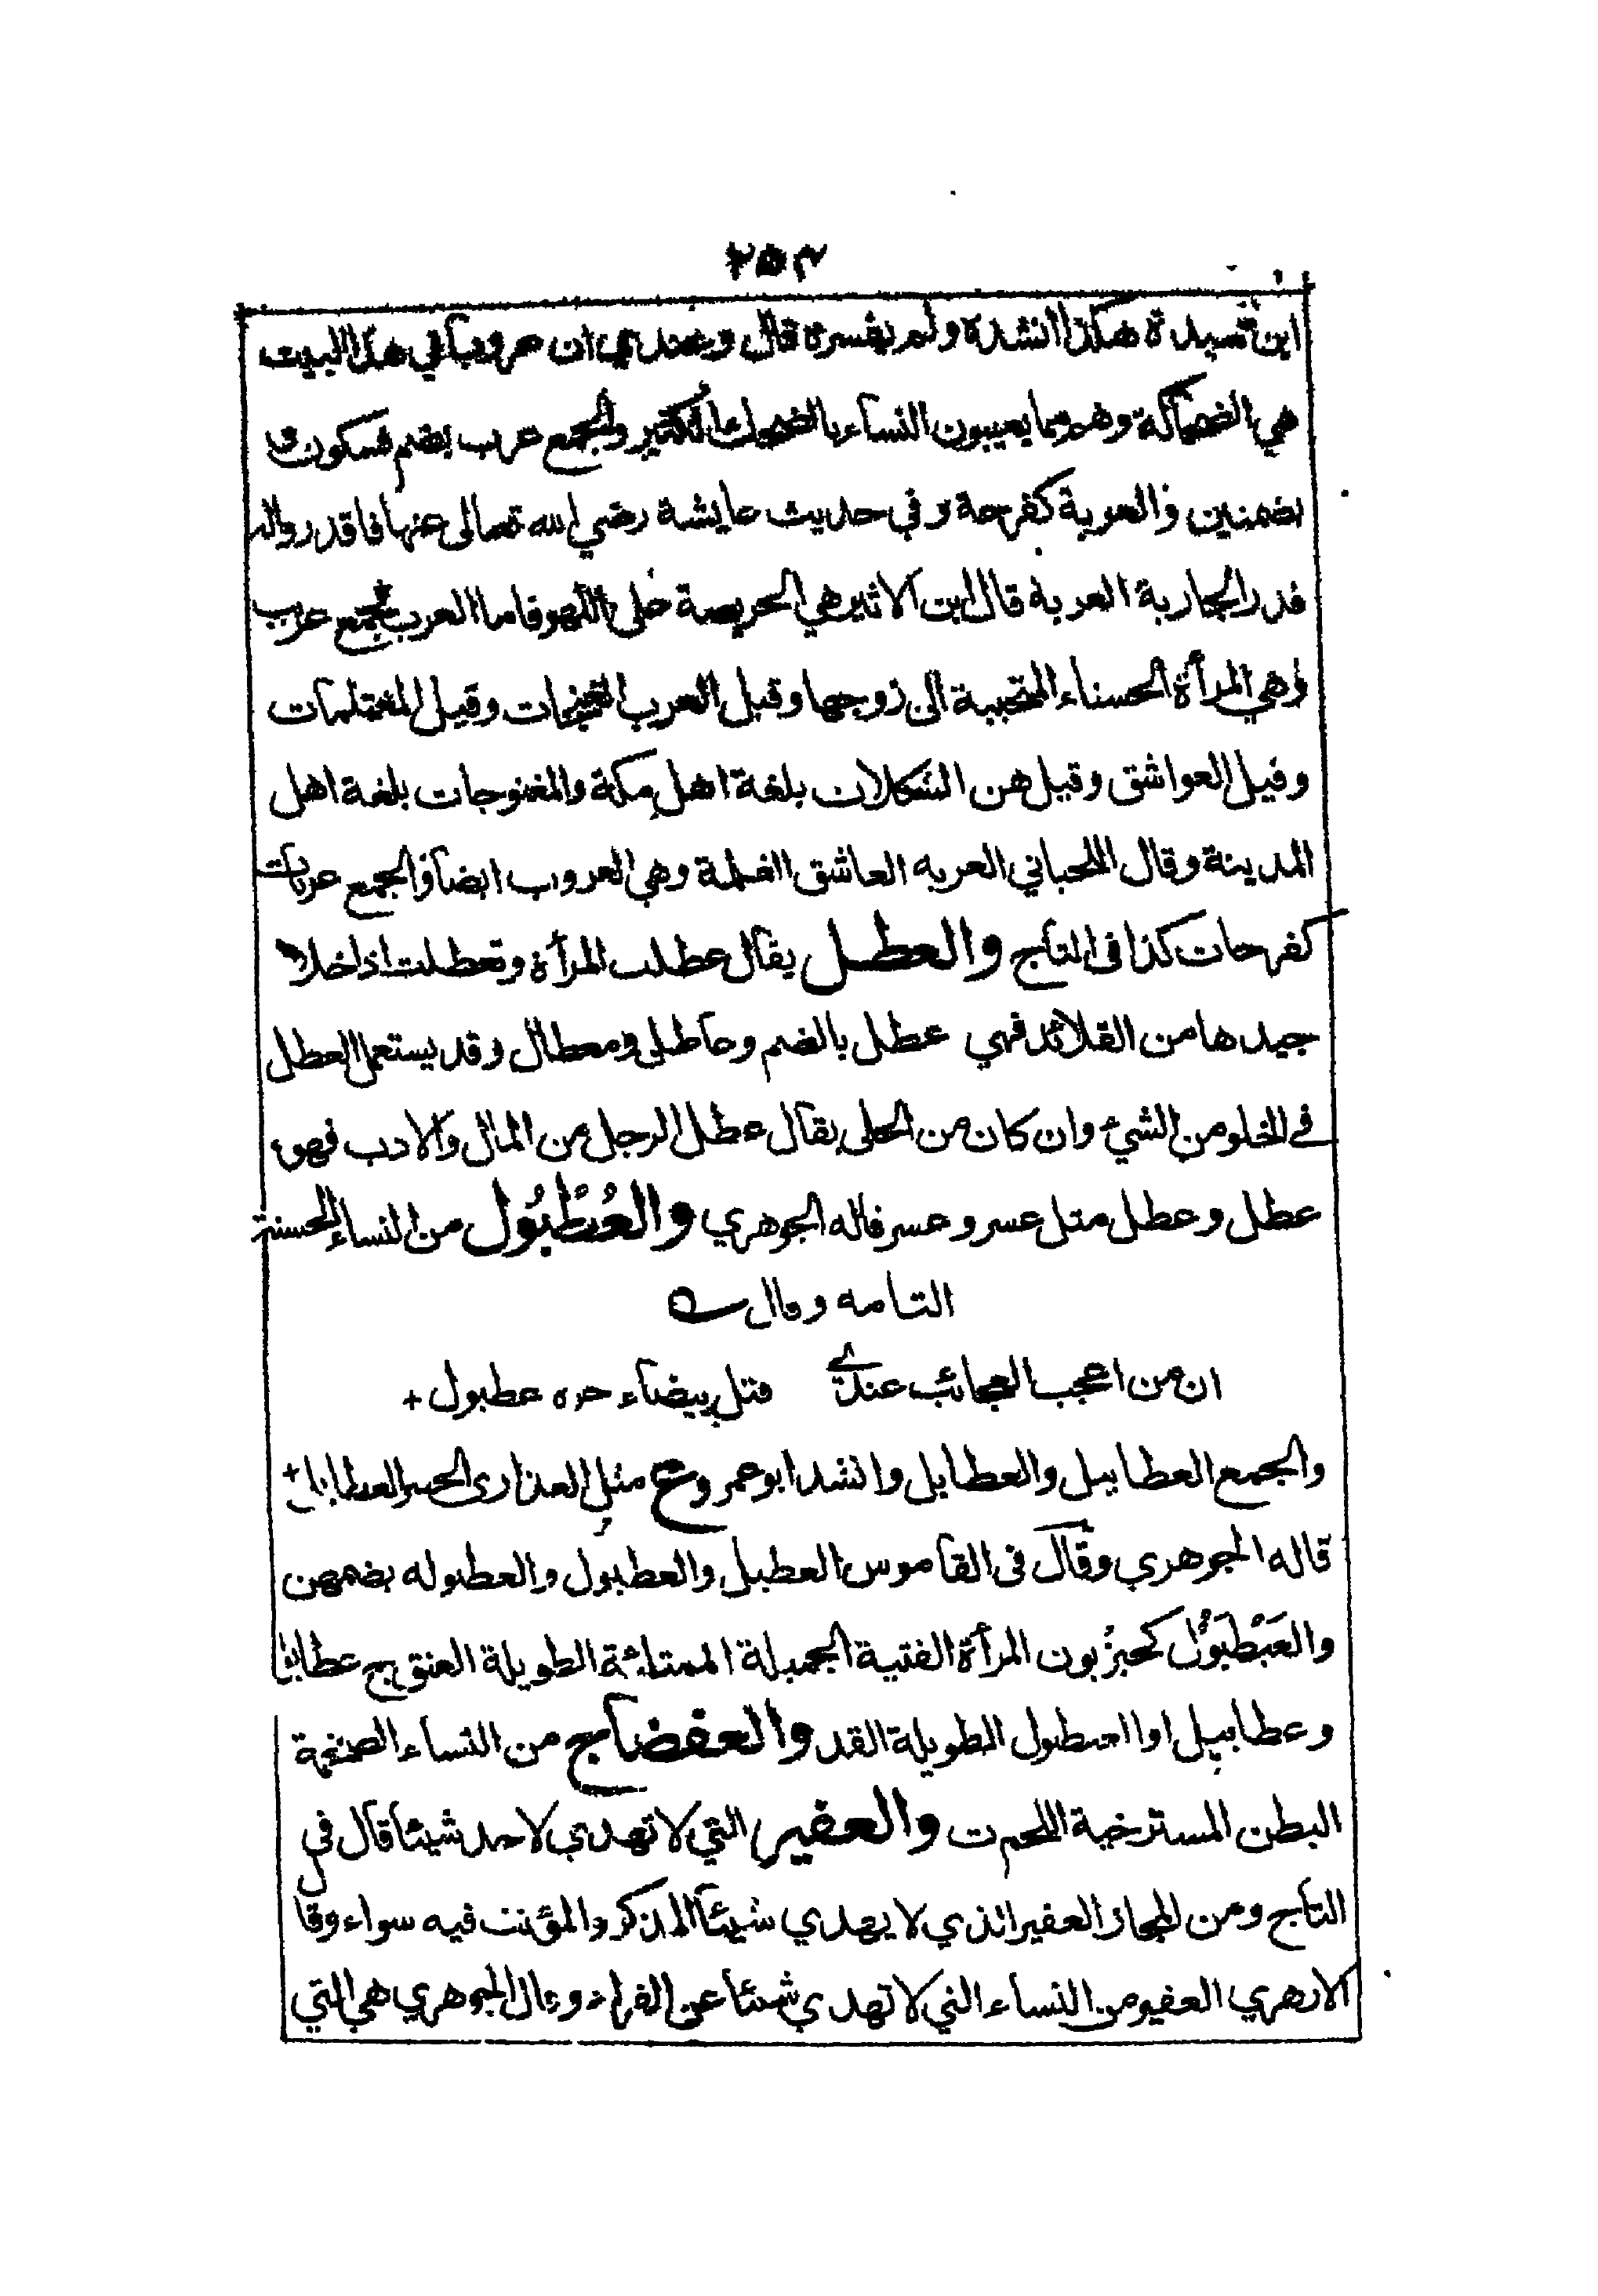 ٢٥٣
ابن سيدة هكذا انشده ولم يفسره قال وعندي ان عروبا في هذا البيت
هي الضحاكة وهم مما يعيبون النساء بالضحك الكثير والجمع عرب بضم فسكون و
بضمتين والعربة كفرحة وفي حديث عايشة رضي الله تعالى عنها فاقدروا له
قدر الجارية العربة قال ابن الاثير هي الحريصة على اللهو فاما العرب فجمع عروب
وهي المرأة الحسناء المتحببة الى زوجها وقيل العرب الغنجات وقيل المغتلمات
وقيل العواشق وقيل هن الشكلات بلغة اهل مكة والمغنوجات بلغة اهل
المدينة وقال اللحياني العربه العاشق الغلمة وهي العروب ايضا والجمع عربات
كفرحات كذا في التاج والعطل يقال عطلت المرأة وتعطلت اذا خلا
جيدها من القلائد فهي عطل بالضم وعاطل ومعطال وقد يستعمل العطل
في الخلو من الشيء وان كان من الحلى يقال عطل الرجل من المال والادب فهو
عطل وعطل مثل عسر وعسر قاله الجوهري والعُطْبُول من النساء الحسنة
التامه وقال
ان من اعجب العجائب عندي قتل بيضاء حره عطبول +
والجمع العطابيل والعطابل وانشد ابو عمرو ع مثل العذارى الحسر العطابل +
قاله الجوهري وقال في القاموس العطبل والعطبول والعطبوله بضمهن
والعَيْطَبُول كحيزبون المرأة الفتية الجميلة الممتلئة الطويلة العنق ج عطابل
وعطابيل او العطبول الطويلة القد والعفضاج من النساء الضخمة
البطن المسترخية اللحم ت والعفير التي لا تهدي لاحد شيئا قال في
التاج ومن المجاز العفير الذي لا يهدي شيئا المذكر والمؤنث فيه سواء وقال
الازهري العفير من النساء التي لا تهدي شيئا عن الفراء وقال الجوهري هي التي